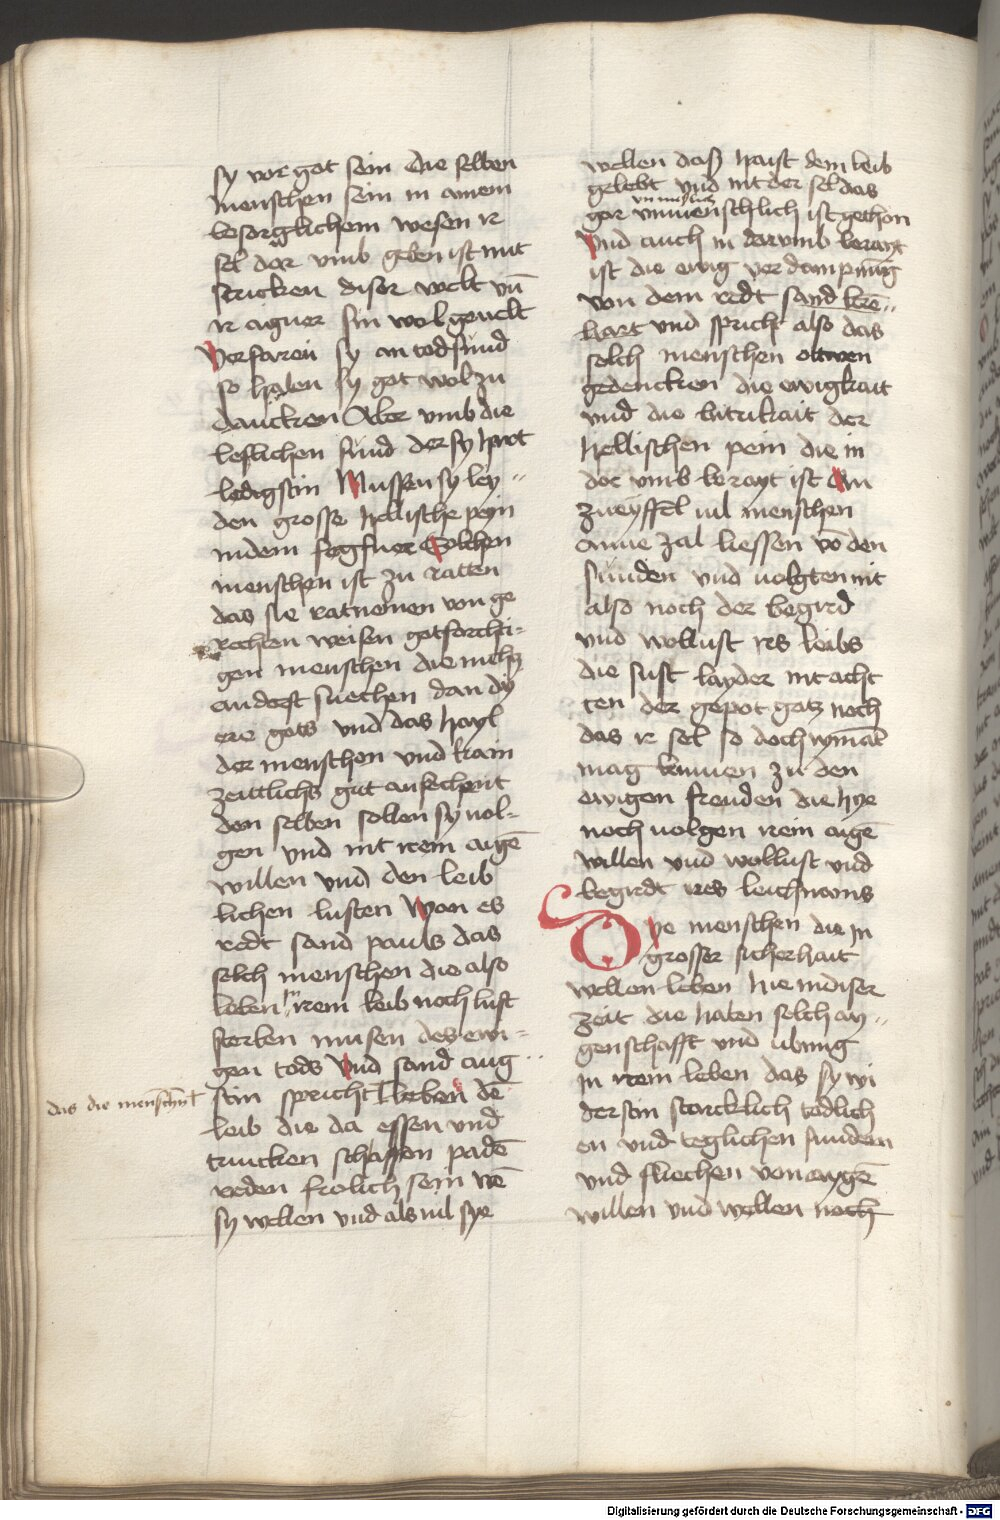 sy vor got sein die selben
menschen sein in ainem
besorglichem wesen ir
sel dar vmb geben ist mit
stricken diser welt vn̄
ir aigner sin wol geuelt
Verfaren sy an tod sünd
so haben sy got wol zu
dancken Aber vmb die
leslichen sünd der sy hye not
ledig sein Mussen sy ley〃
den grosse hellische peyn
in dem fegfuer Solchen
menschen ist zu ratten
das sie rat nemen von ge
rechten weisen gotforchti=
gen menschen die nichtz
anderst suechen dan dy
ere gots vnd das hayl
der menschen vnd kain
zeittlichs gut ansechent
den selben sollen sy uol=
gen vnd nit irem aigē
willen vnd den leib
lichen lusten Won es
redt sand pauls das
solch menschen die also
leben in irem leib noch lust
sterben musen des ewi=
gen tods Vnd sand aug
stin spricht leben dē
das die menschait
leib die da essen vnd
trincken schaffen padē
reden frolich sein wē
sy wellen vnd als uil sye
wellen das haist dem leib
gelebt vnd nit der sel das
gar vnmenschlich ist gethon
Vnd auch in darvmb berayt
ist die ewig verdampnūg
von dem redt sand bern〃
hart vnd spricht also das
solch menschen ottwen
gedencken die ewigkait
vnd die bitrikait der
hellischen pein die in
dar vmb berayt ist An
zweyffel uil menschen
anne zal liessen vō den
sünden vnd uolgten nit
also noch der begird
vnd wollust irs leibs
die sust layder nit acht
ten der gepot gotz noch
das ir sel so doch nymāt
mag kumen zu den
ewigen freuden die hye
noch uolgen irem aigē
willen vnd wollust vnd
begirdt ires leichnams
Dye menschen die in
grosser sicherhait
wellen leben hie in diser
zeit die haben solch ay〃
genschafft vnd ubung
in irem leben das sy wi
der sein starcklich tödlich
en vnd teglichen sunden
vnd fliechen von aygē
willen vnd wellen noch
Digitalisierung gefördert durch die Deutsche Forschungsgemeinschaft - DFG